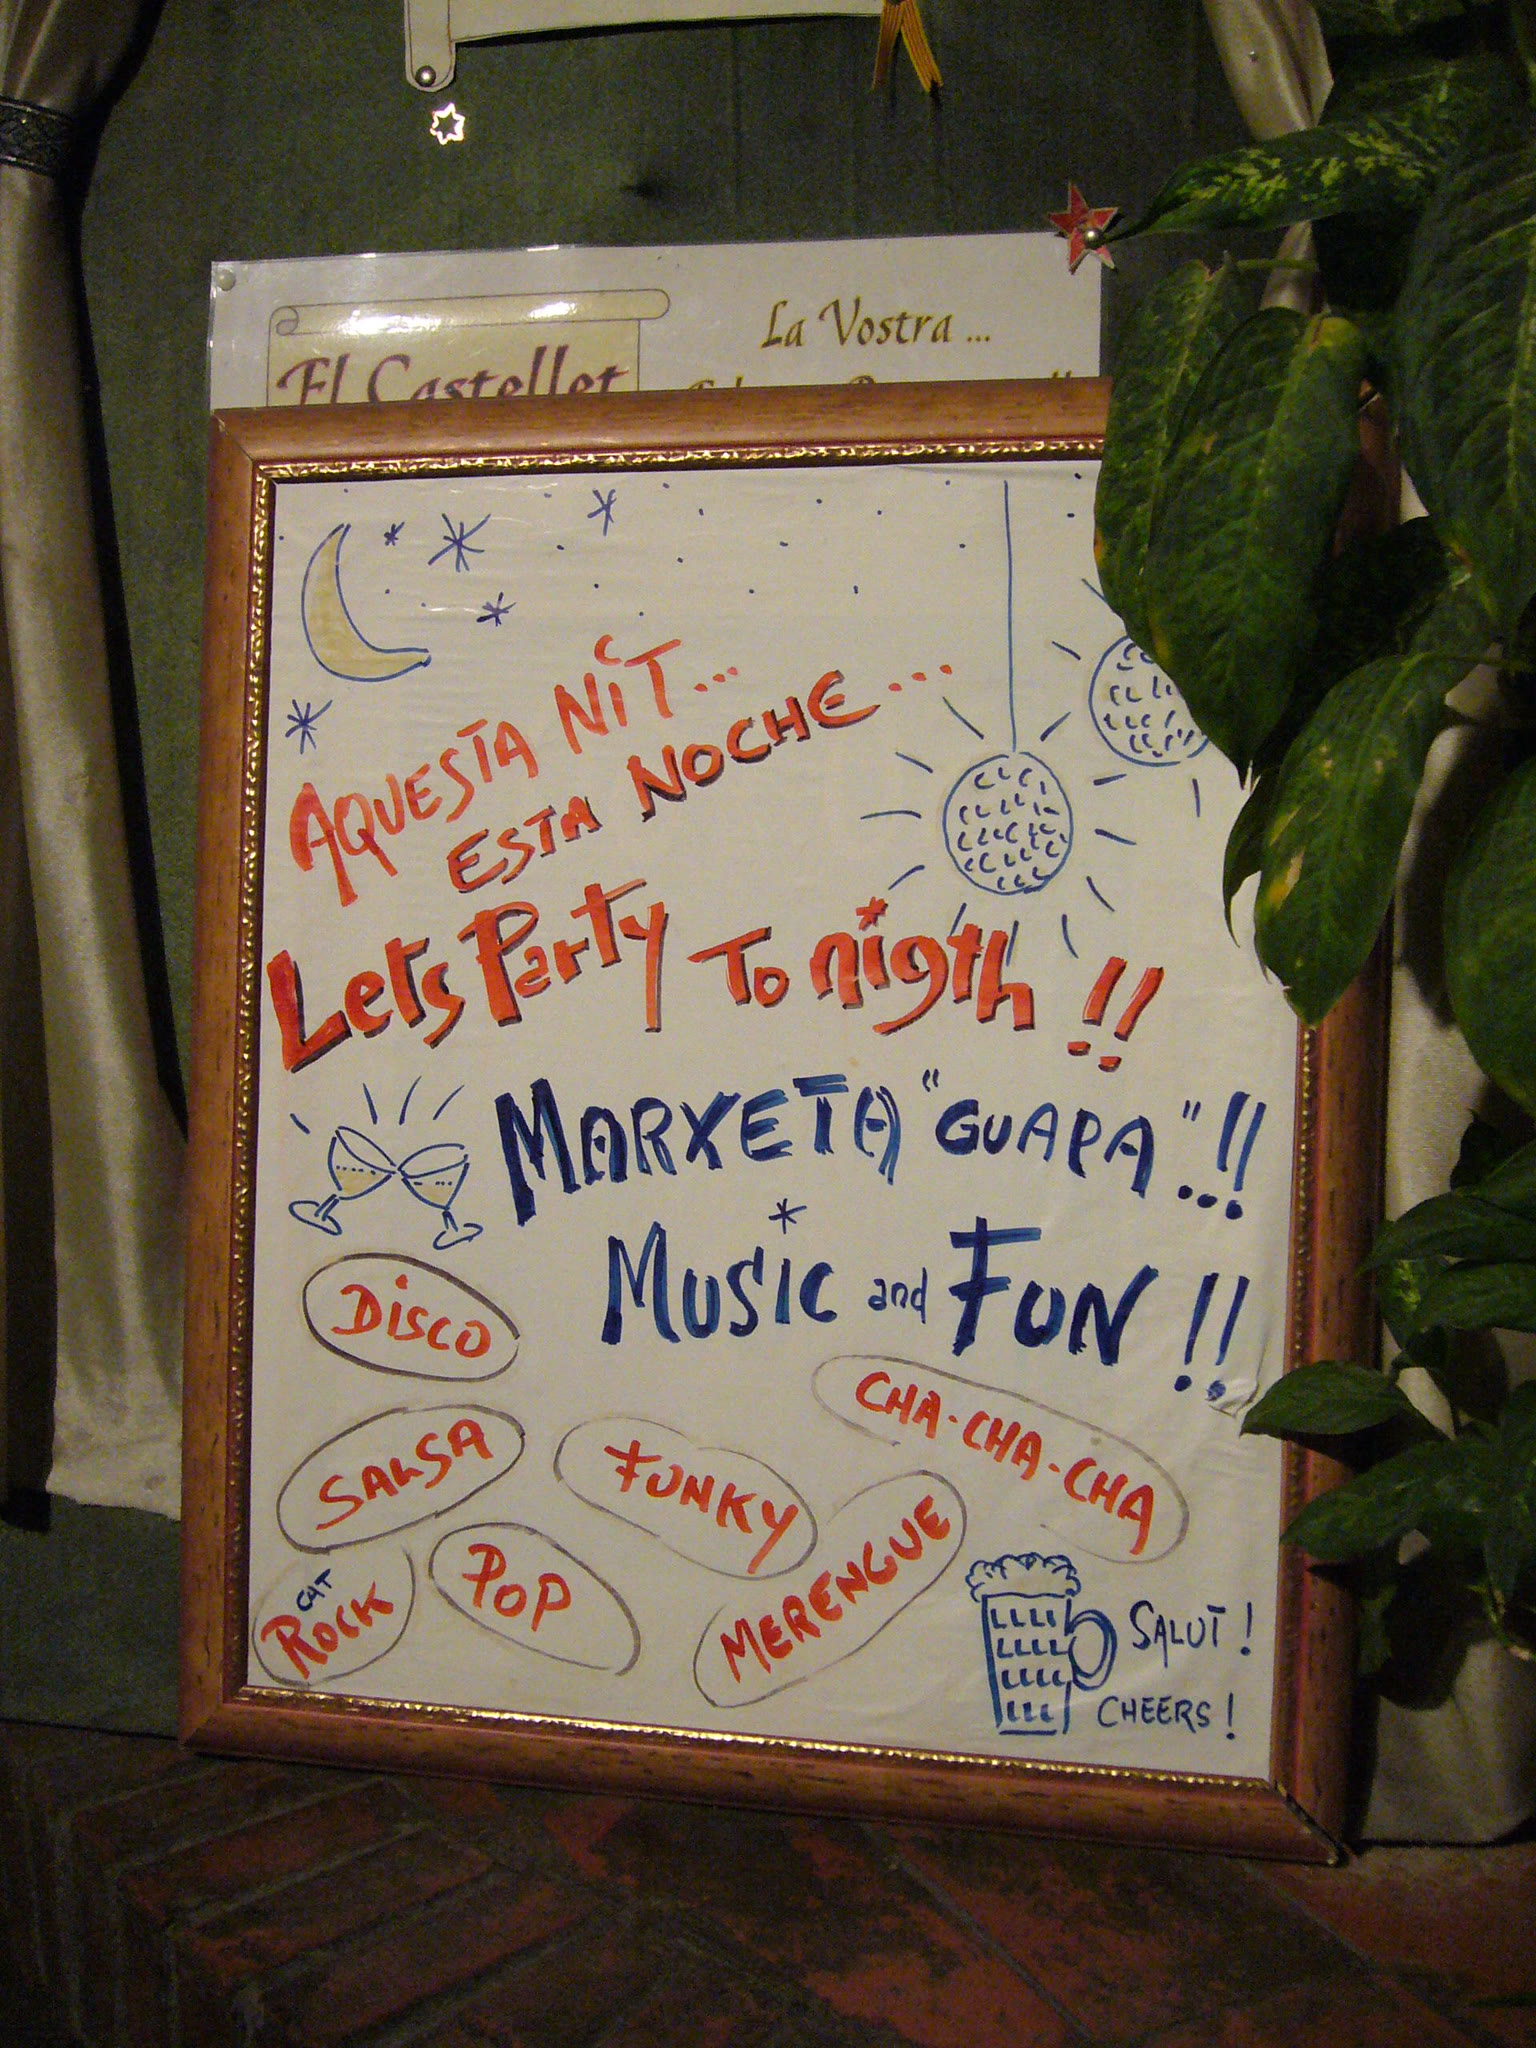 El Castellet
La Vostra ...
AQUESTA NiT...
ESTA NOCHE...
Lets Party To nigth !!
MARXETA "GUAPA"..!!
MUSIC and FUN !!
DiSCO
CHA-CHA-CHA
SALSA
FUNKY
MERENGUE
POP
CAT
ROCK
SALUT !
CHEERS !